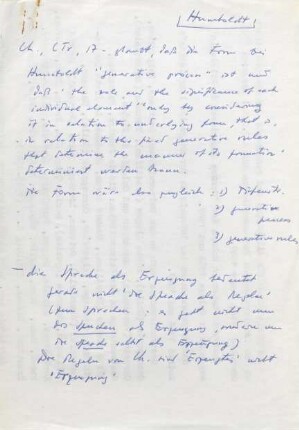 [Humboldt]
Ch., CTr, 17 - glaubt, daß die Form bei
Humboldt "generative process" ist und
daß "the role and the significance of each
individual element" "only by considering
it in relation to underlying form, that is,
in relation to the fixed generative rules
that determine the manner of its formation"
determiniert werden kann.
Die Form wäre also zugleich: 1)
2) generative
process
3) generative rules
- die Sprache als Erzeugung bedeutet
gerade nicht 'die Sprache als Regeln'
(zum Sprechen: es geht nicht um
das Sprechen als Erzeugung, sondern um
die Sprache selbst als Erzeugung)
Die Regeln von Ch. sind 'Erzeugtes' nicht
'Erzeugung'